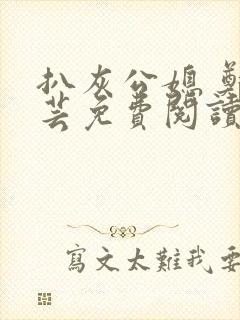 扒灰公媳 鄭
芸免費閱讀
寫文太難我要